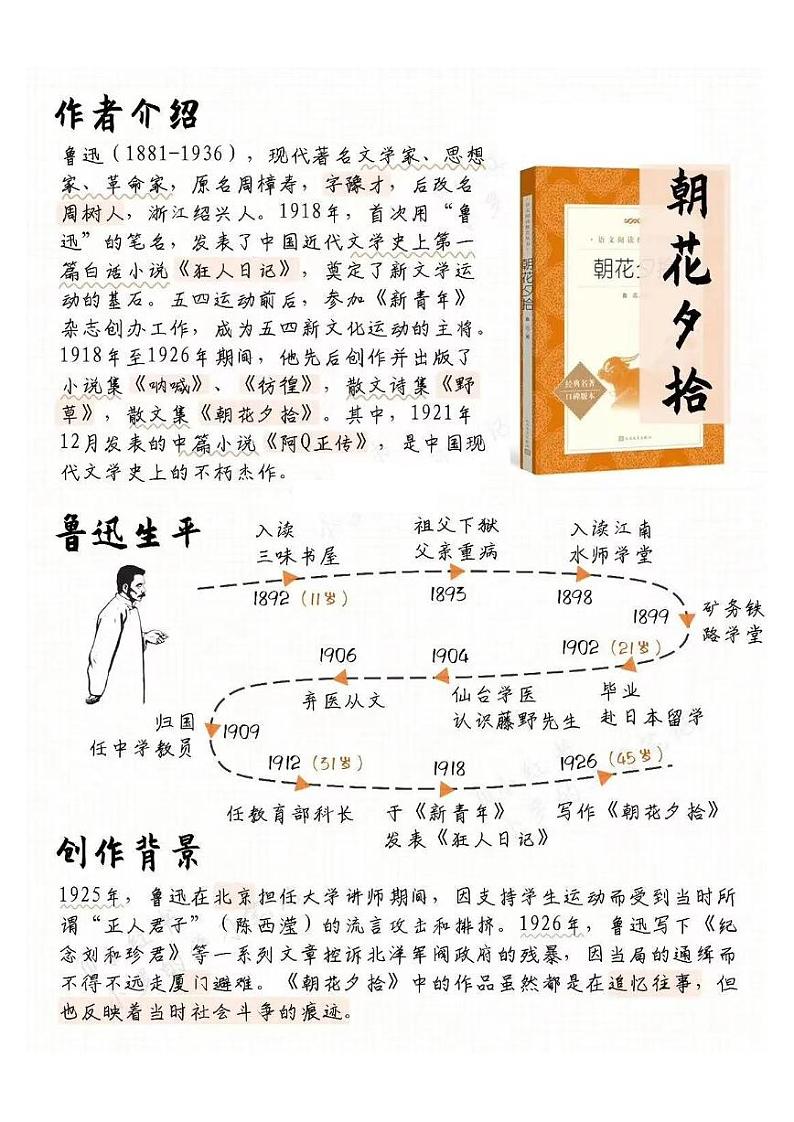 作者介绍
鲁迅（1881-1936），现代著名文学家、思想
家、革命家，原名周樟寿，字豫才，后改名
周树人，浙江绍兴人。1918年，首次用“鲁
迅”的笔名，发表了中国近代文学史上第一
篇白话小说《狂人日记》，奠定了新文学运
动的基石。五四运动前后，参加《新青年》
杂志创办工作，成为五四新文化运动的主将。
1918年至1926年期间，他先后创作并出版了
小说集《呐喊》、《彷徨》，散文诗集《野
草》，散文集《朝花夕拾》。其中，1921年
12月发表的中篇小说《阿Q正传》，是中国现
代文学史上的不朽杰作。
朝花夕拾
朝花夕拾
朝花夕拾
经典名著
口碑版本
鲁迅生平
入读
三味书屋
祖父下狱
父亲重病
入读江南
水师学堂
1892（11岁）
1893
1898
1899
矿务铁
路学堂
1906
1904
1902（21岁）
弃医从文
仙台学医
认识藤野先生
毕业
赴日本留学
归国
任中学教员
1909
1912（31岁）
1918
1926（45岁）
任教育部科长
于《新青年》
发表《狂人日记》
写作《朝花夕拾》
创作背景
1925年，鲁迅在北京担任大学讲师期间，因支持学生运动而受到当时所
谓“正人君子”（陈西滢）的流言攻击和排挤。1926年，鲁迅写下《纪
念刘和珍君》等一系列文章控诉北洋军阀政府的残暴，因当局的通缉而
不得不远走厦门避难。《朝花夕拾》中的作品虽然都是在追忆往事，但
也反映着当时社会斗争的痕迹。